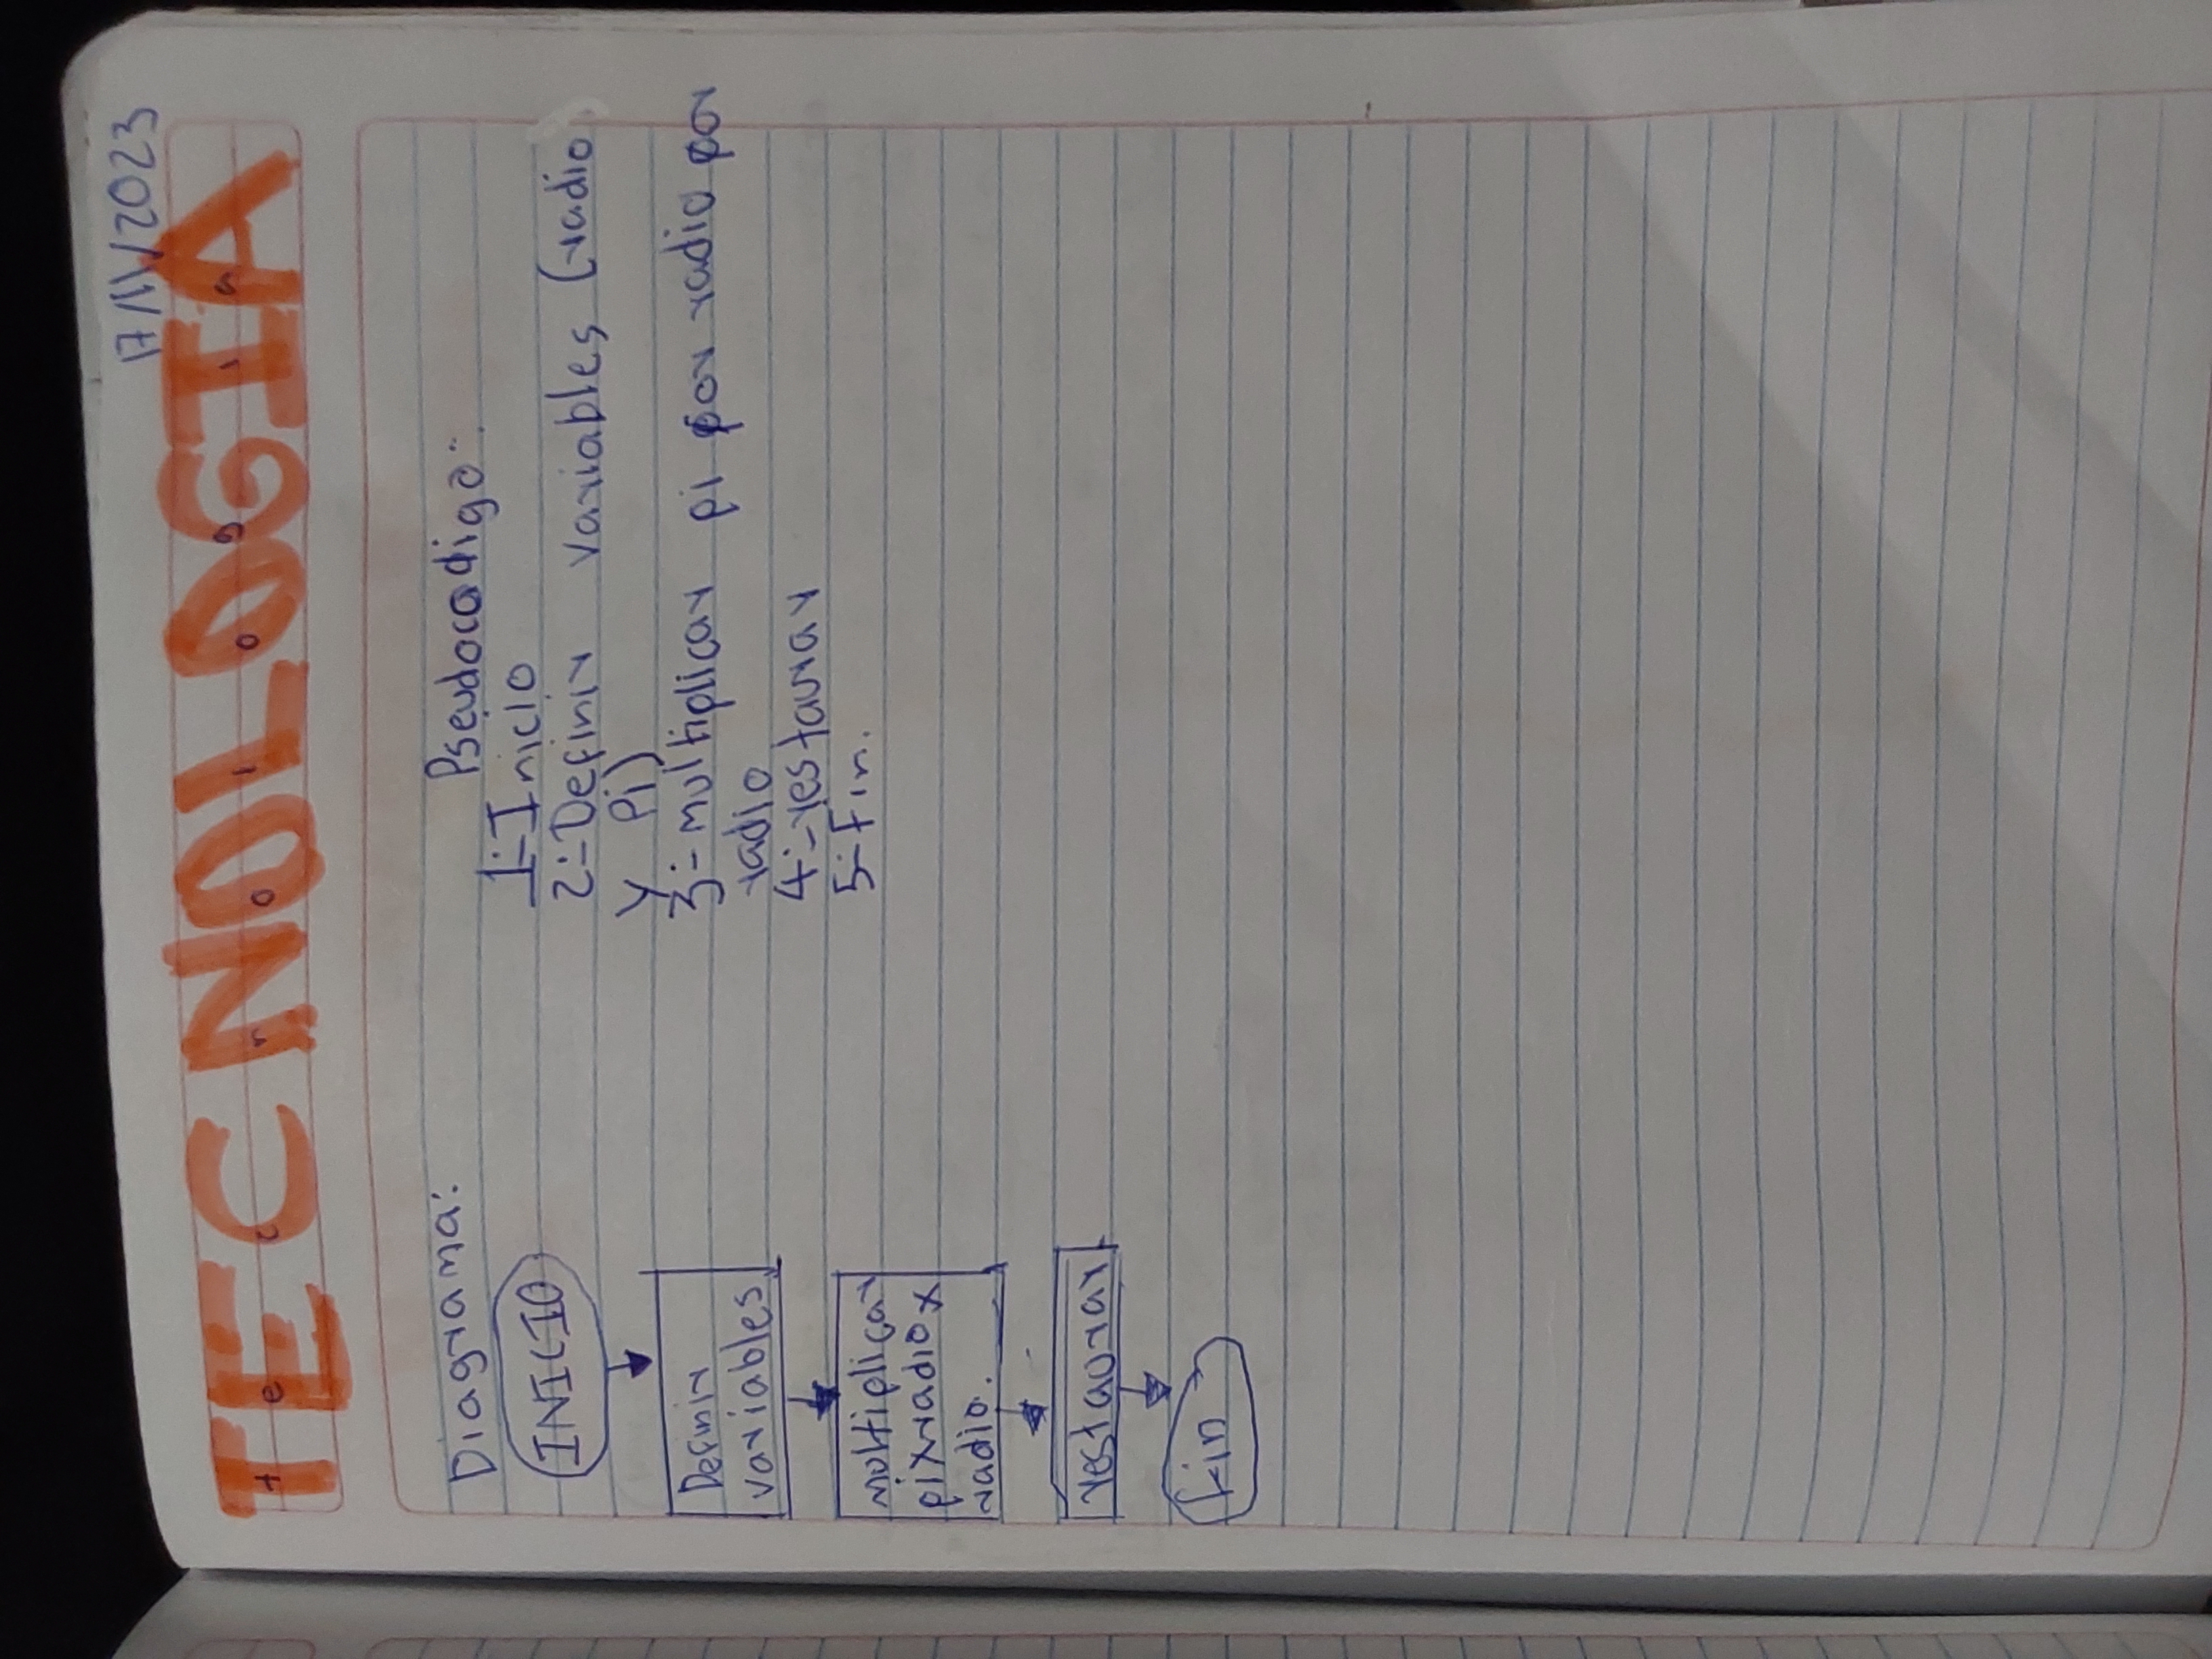 17/11/2023
TECNOLOGIA
Tecnologia
Diagrama:
INICIO
Definir
variables
multiplicar
pixradiox
radio.
restaurar
fin
Pseudocodigo:
1-Inicio
2-Definir variables (radio
y Pi)
3-multiplicar pi por radio por
radio
4-restaurar
5-Fin.